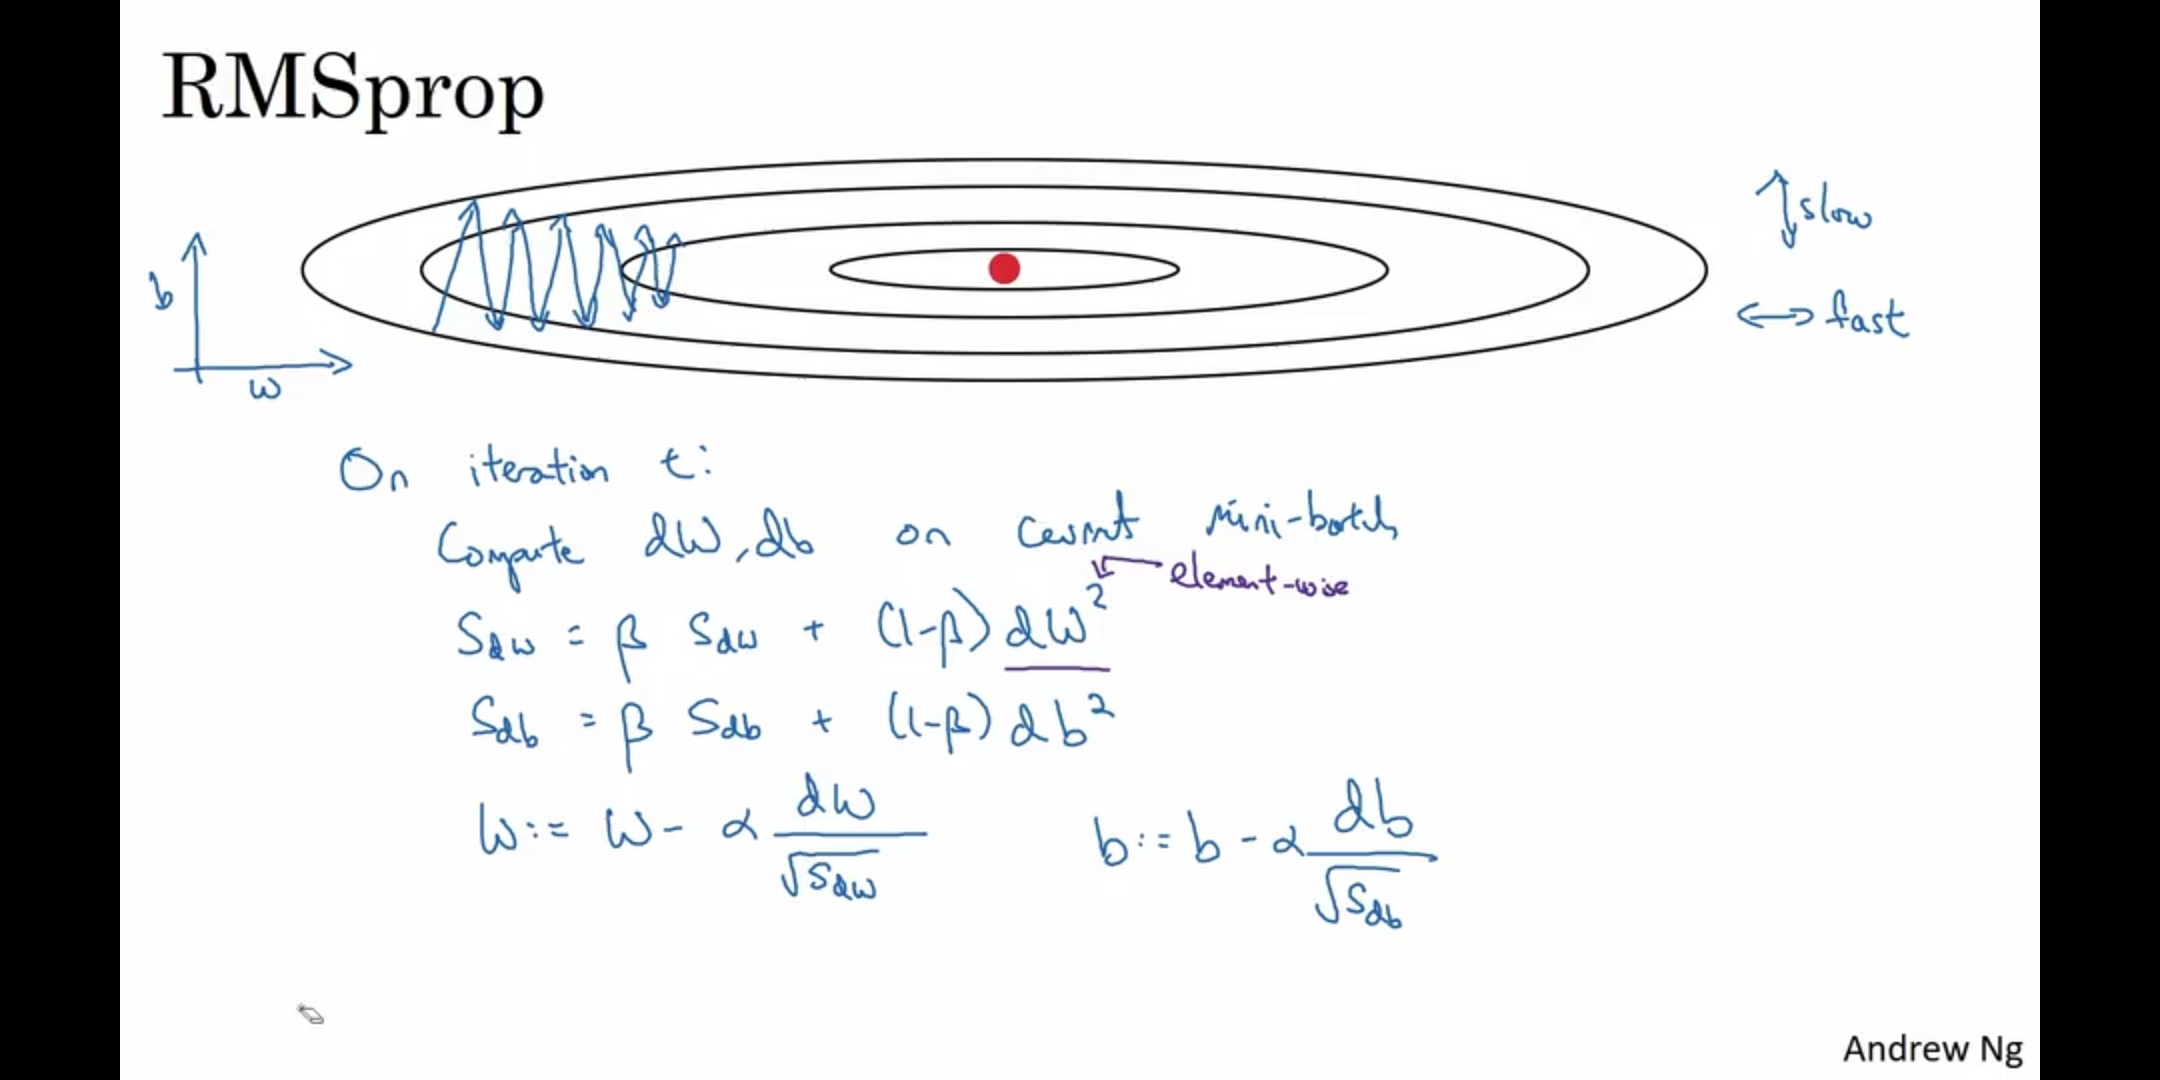 RMSprop
slow
b
fast
w
On iteration t:
Compute dW, db on current mini-batch
element-wise
Sdw = β Sdw + (1-β) dW²
Sdb = β Sdb + (1-β) db²
W := W - α dw/√Sdw    b := b - α db/√Sdb
Andrew Ng